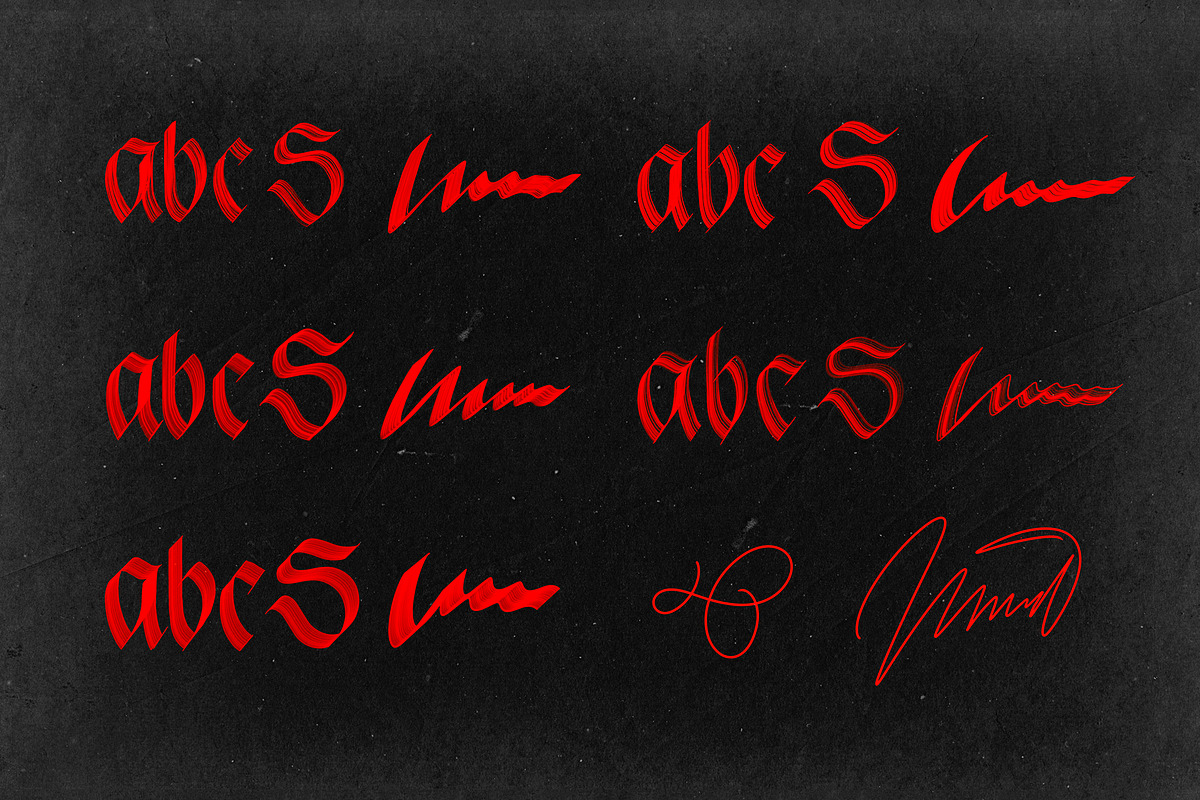 abc S abc S
abc S abc S
abc S